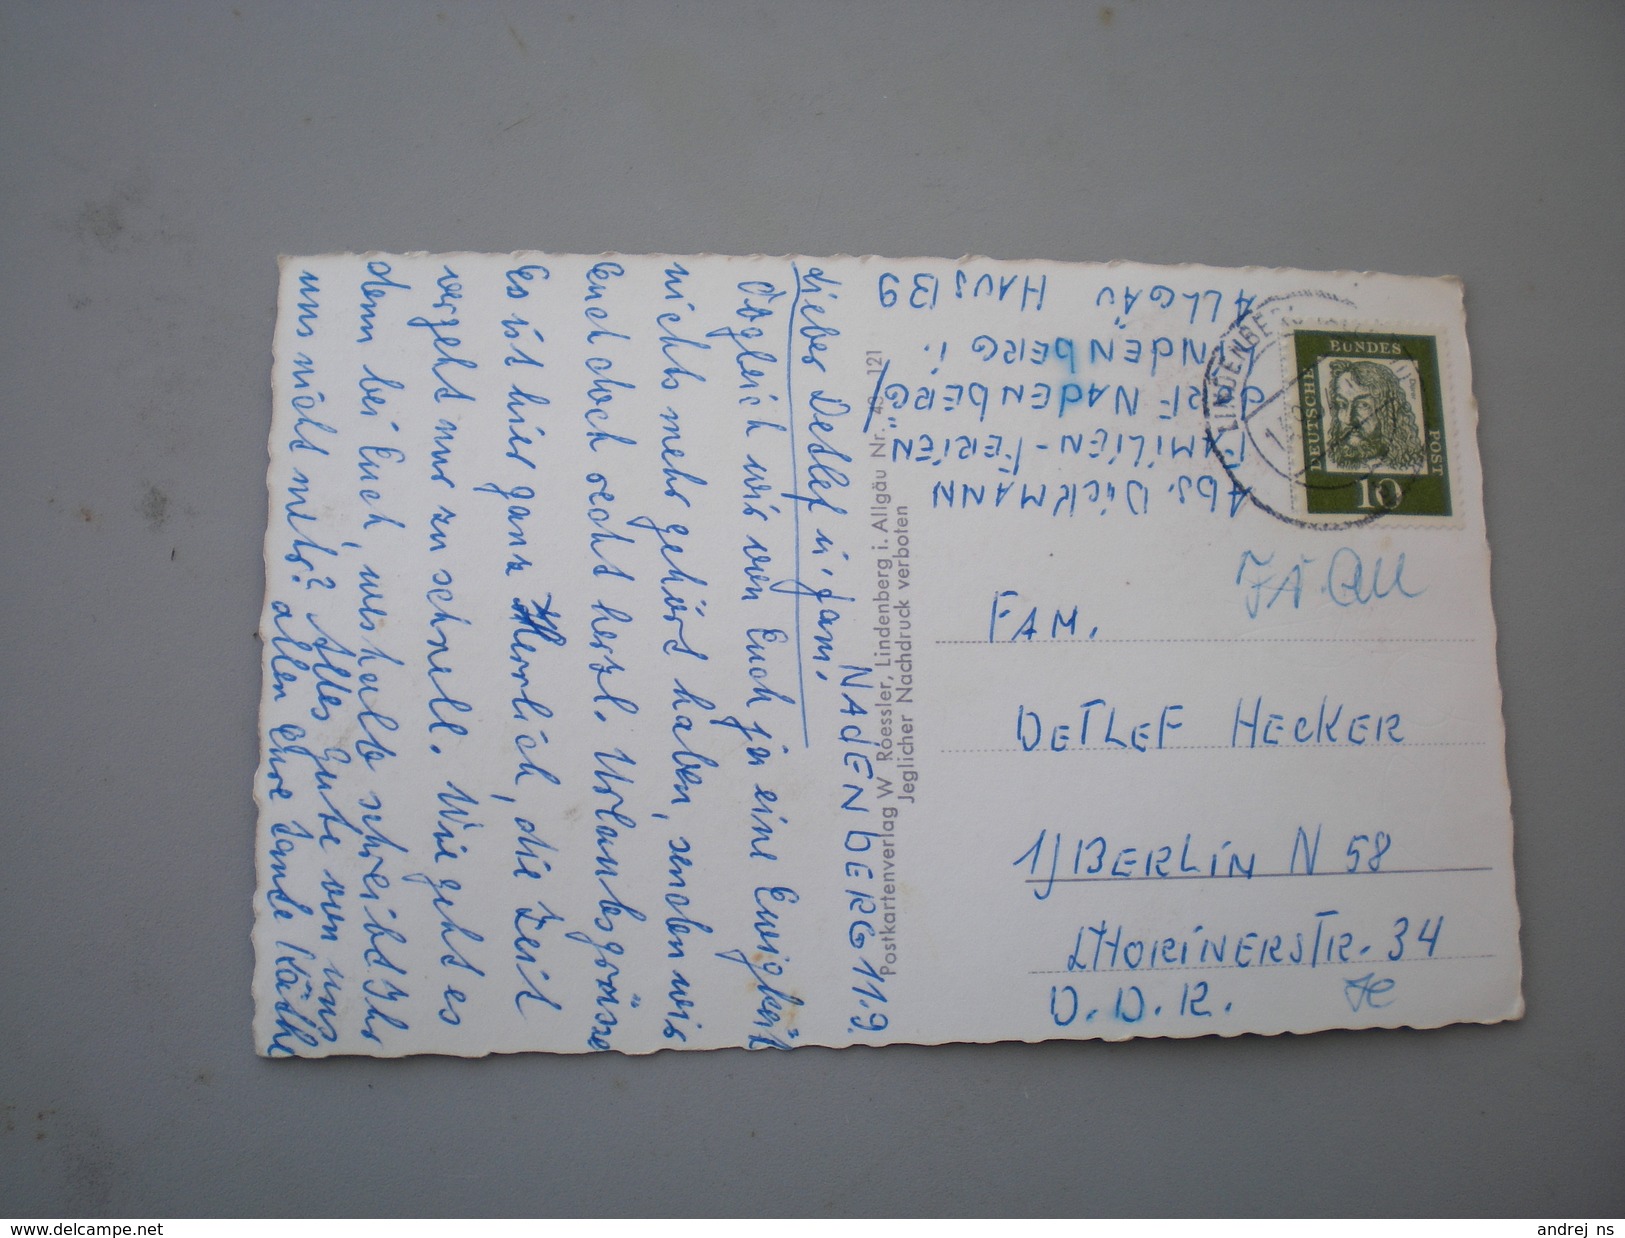 NADENBERG 11.9.
Lieber Detlef u. Fam.
Obgleich wir von Euch ja eine Ewigkeit
nichts mehr gehört haben, senden wir
Euch doch recht herzl. Urlaubsgrüsse
Es ist hier ganz Herrlich, die Zeit
vergeht nur zu schnell. Wie geht es
denn bei Euch, weshalb schreibt Ihr
uns nicht mehr? Alles Gute von uns
allen Eure Tante Käthe
Postkartenverlag W. Roessler, Lindenberg i. Allgäu Nr. 43 121
Jeglicher Nachdruck verboten
Abs. DICKMANN
FAMILIEN-FERIEN
DORF NADENBERG"
LINDENBERG i.
ALLGÄU HAUS 139
LINDENBERG
DEUTSCHE
BUNDES
POST
10
FAM.
DETLEF HECKER
1) BERLIN N 58
D.D.R.